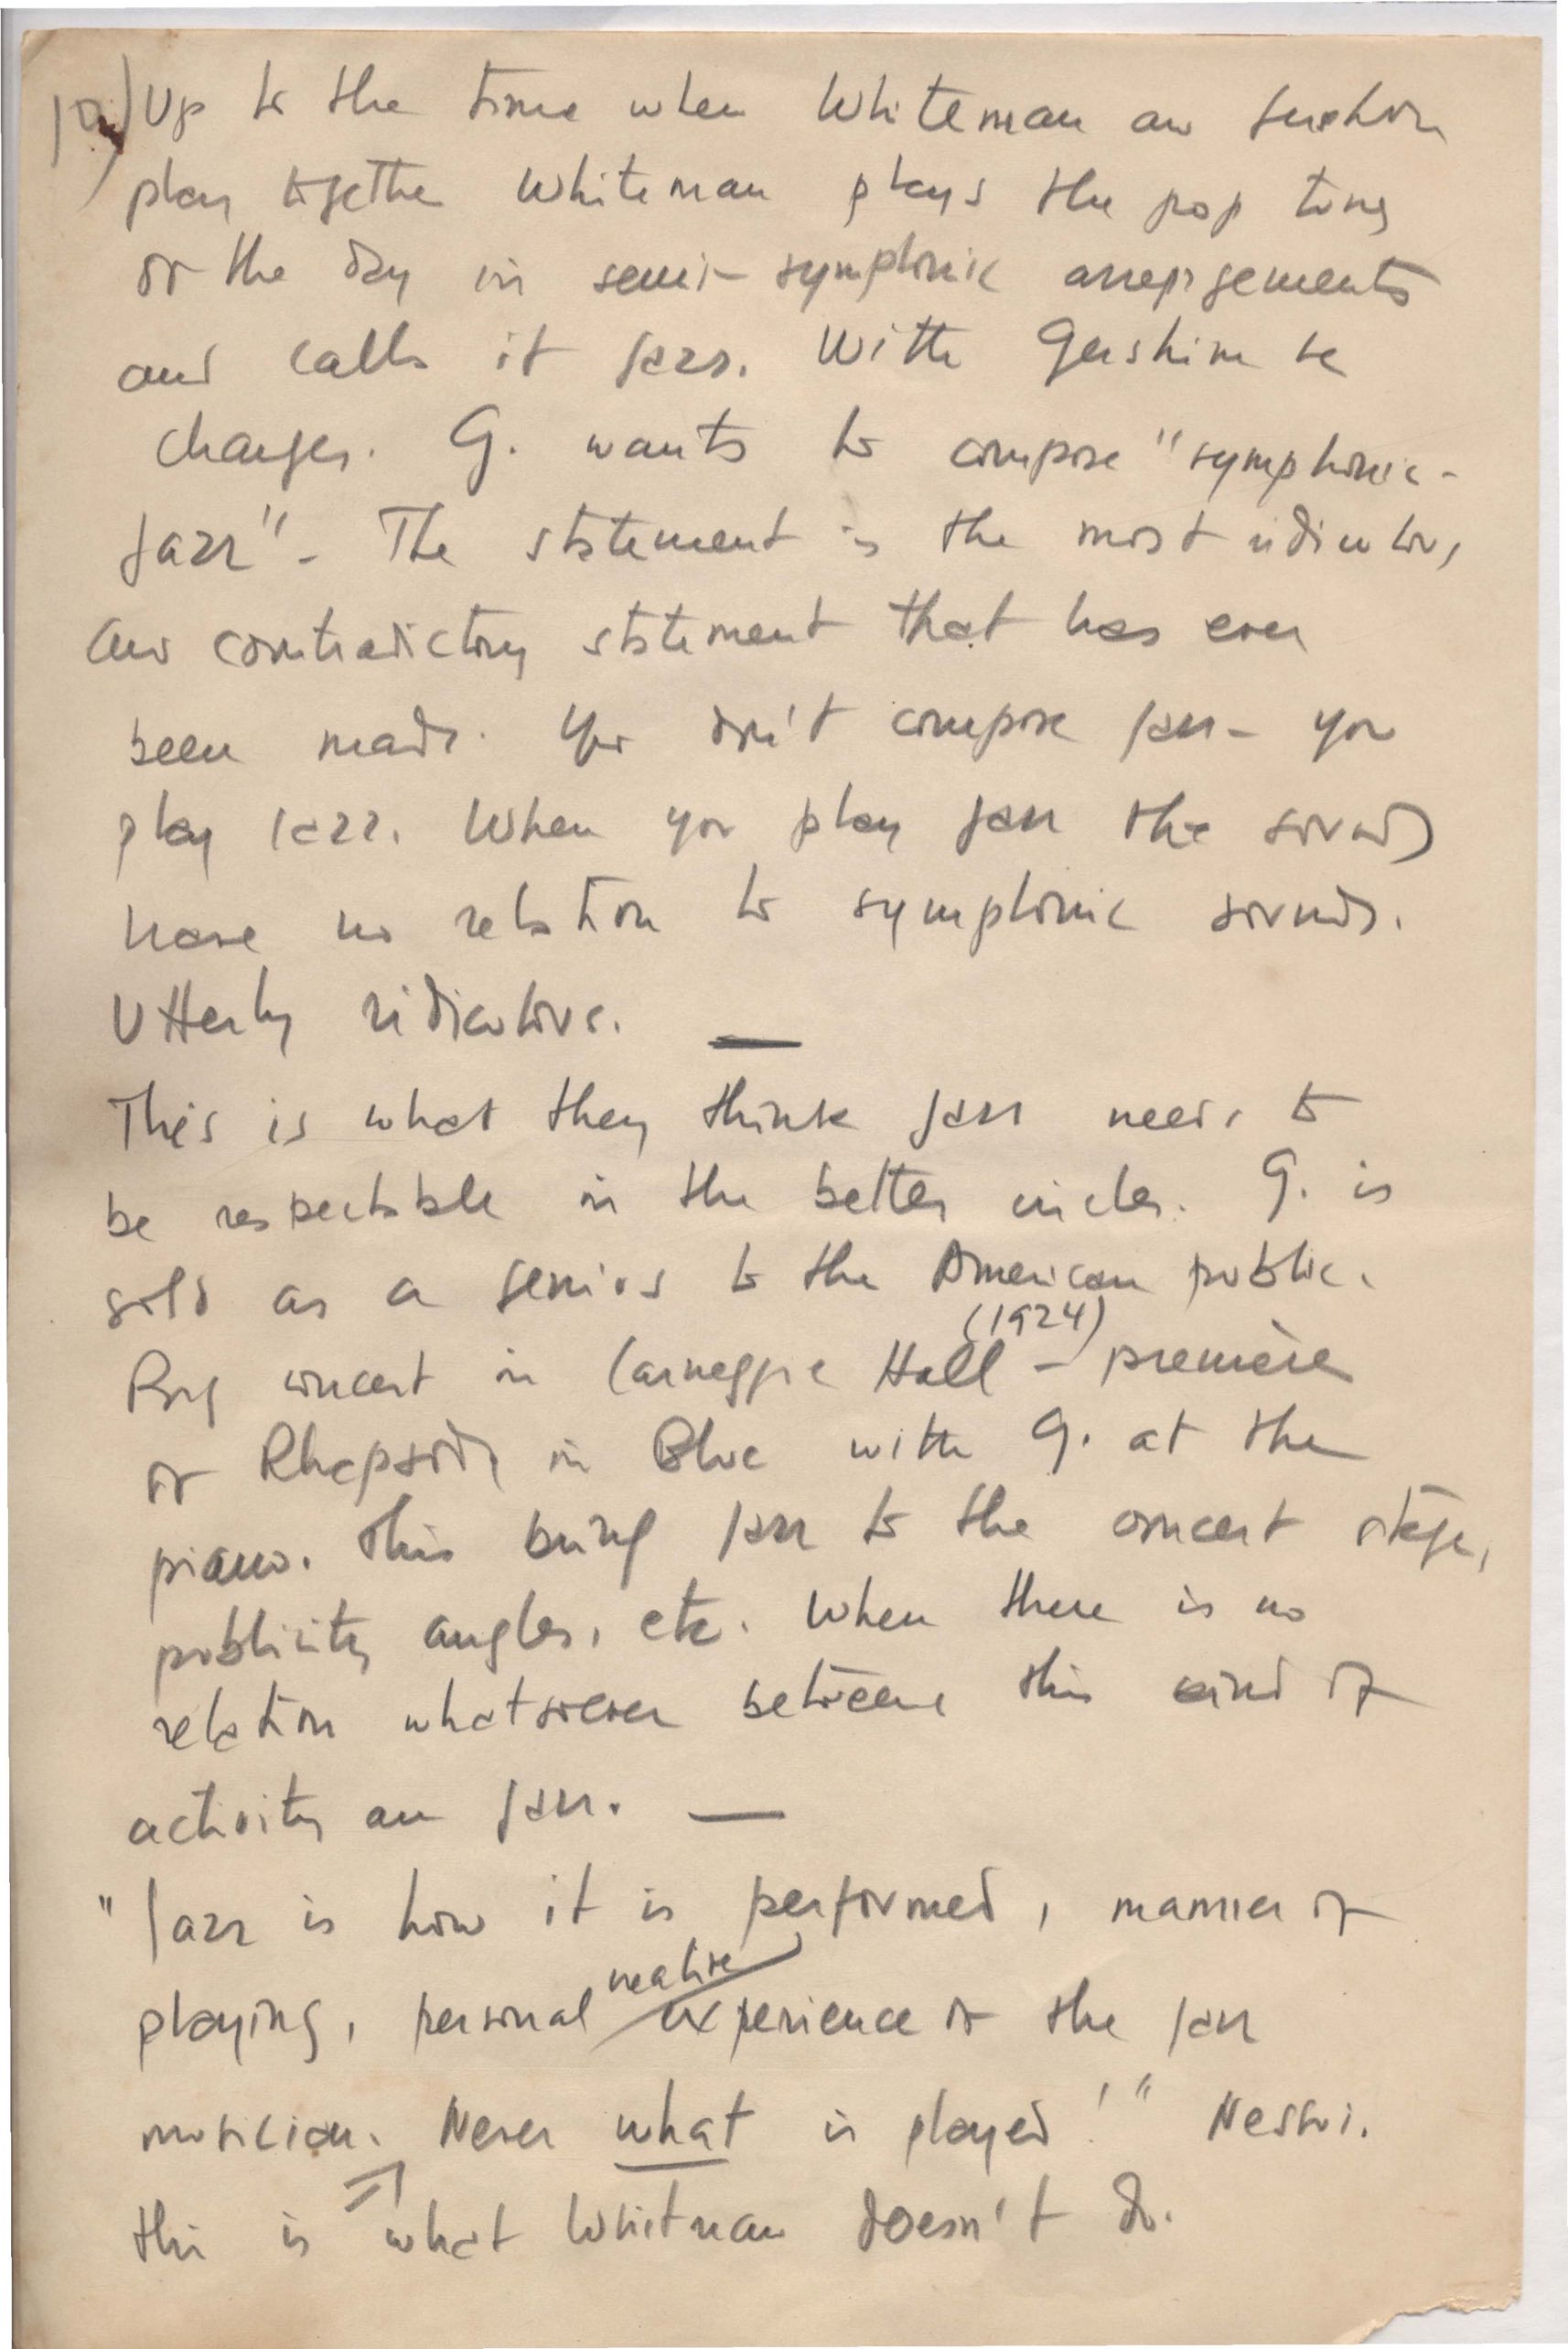 Up to the time when Whiteman and Gershwin
play together Whiteman plays the pop tunes
of the day in semi-symphonic arrangements
and calls it jazz. With Gershwin he
changes. G. wants to compose "symphonic-
jazz" - The statement is the most ridiculous
and contradictory statement that has ever
been made. You don't compose jazz - you
play jazz. When you play jazz the sounds
have no relation to symphonic sounds.
Utterly ridiculous. —
This is what they think jazz needs to
be respectable in the better circles. G. is
sold as a genius to the American public.
(1924)
Big concert in Carneggie Hall - première
of Rhapsody in Blue with G. at the
piano. This bring jazz to the concert stage,
publicity angles, etc. When there is no
relation whatsoever between this kind of
activity and jazz. —
"Jazz is how it is performed, manner of
playing, personal experience of the jazz
musician. Never what is played!" Nesuhi.
this is what Whitman doesn't do.